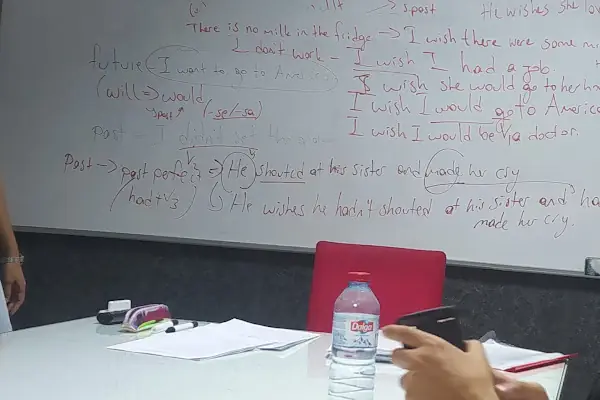 → spost He wishes she
There is no milk in the fridge → I wish there were some mi
I don't work - I wish I had a job
future I want to go to America I wish she would go to her
(will => would I wish I would go to America
past (-se/-sa) I wish I would be a doctor.
Past - I didn't
Past → past perfect => He shouted at his sister and made her cry
had+V3 He wishes he hadn't shouted at his sister and ha
made her cry.
Dolga